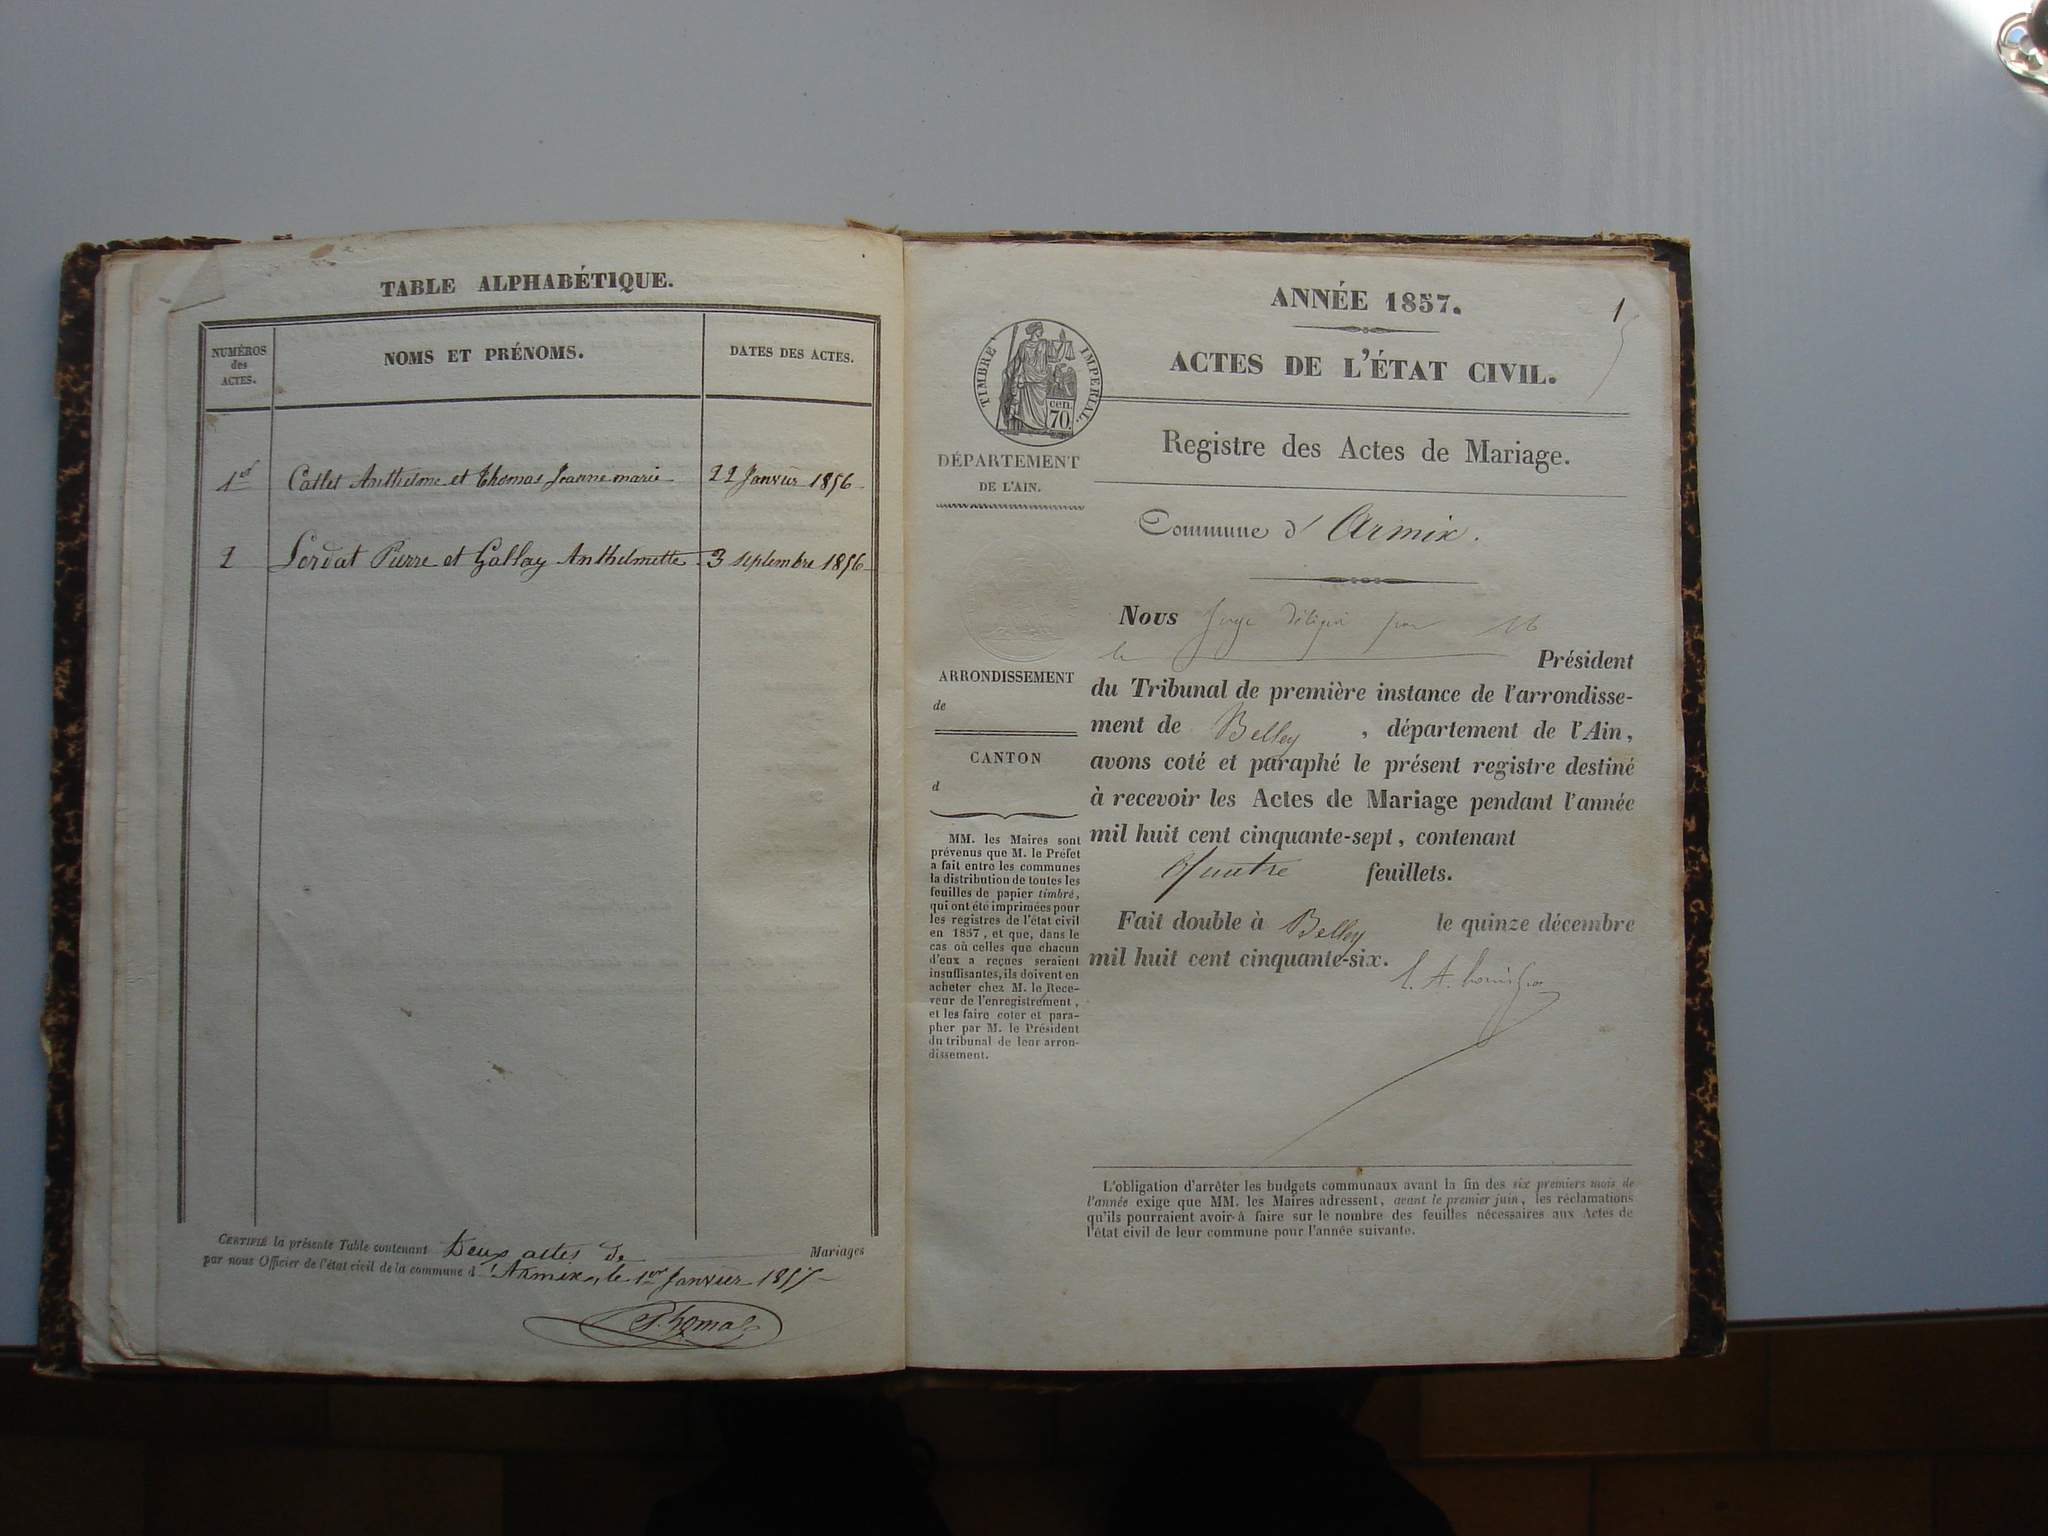 TABLE ALPHABÉTIQUE.
NUMÉROS
des
ACTES.
NOMS ET PRÉNOMS.
DATES DES ACTES.
1er Catlet Anthelme et Thomas Jeanne marie 22 Janvier 1856
2 Lordat Pierre et Gallay Anthelmette 3 septembre 1856
CERTIFIÉ la présente Table contenant Deux actes de Mariages
par nous Officier de l'état civil de la commune d'Armix, le 1er Janvier 1857
Thomas
1
ANNÉE 1857.
ACTES DE L'ÉTAT CIVIL.
TIMBRE IMPERIAL.
cen.
70.
DÉPARTEMENT
DE L'AIN.
Registre des Actes de Mariage.
Commune d'Armix.
ARRONDISSEMENT
de
CANTON
d
MM. les Maires sont
prévenus que M. le Préfet
a fait entre les communes
la distribution de toutes les
feuilles de papier timbré,
qui ont été imprimées pour
les registres de l'état civil
en 1857, et que, dans le
cas où celles que chacun
d'eux a reçues seraient
insuffisantes, ils doivent en
acheter chez M. le Rece-
veur de l'enregistrement,
et les faire coter et para-
pher par M. le Président
du tribunal de leur arron-
dissement.
Nous Juge délégué par M
le Président
du Tribunal de première instance de l'arrondisse-
ment de Belley, département de l'Ain,
avons coté et paraphé le présent registre destiné
à recevoir les Actes de Mariage pendant l'année
mil huit cent cinquante-sept, contenant
Quatre feuillets.
Fait double à Belley le quinze décembre
mil huit cent cinquante-six.
L'obligation d'arrêter les budgets communaux avant la fin des six premiers mois de
l'année exige que MM. les Maires adressent, avant le premier juin, les réclamations
qu'ils pourraient avoir à faire sur le nombre des feuilles nécessaires aux Actes de
l'état civil de leur commune pour l'année suivante.